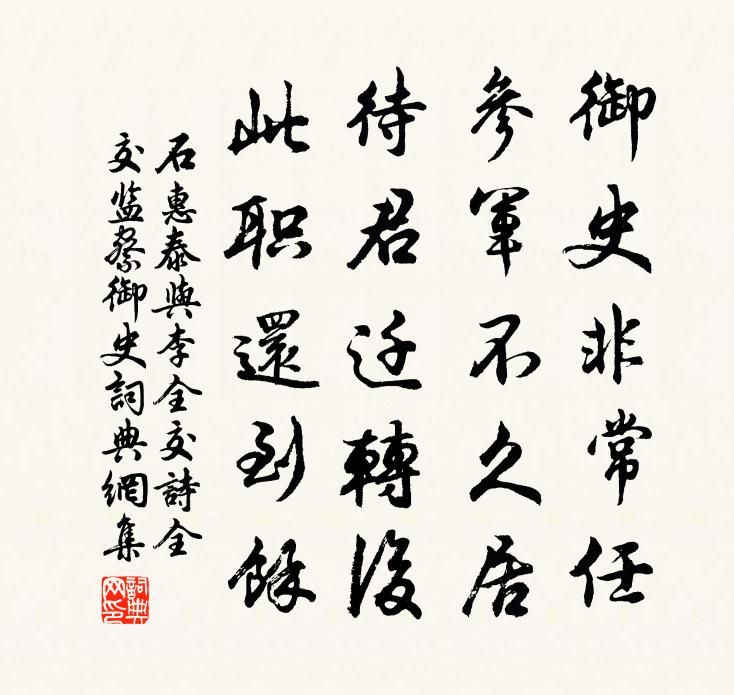 御史非常任
參軍不久居
待君迁轉後
此职還到餘
石惠泰與李全交詩全
交监察御史詞典網集
詞典网印